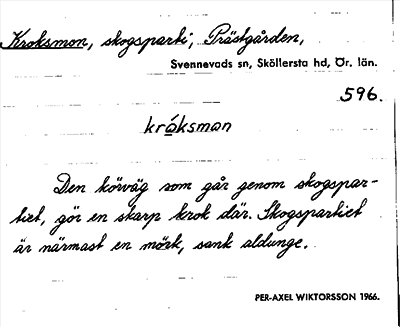 Kroksmon, skogsparti, Prästgården,
Svennevads sn, Sköllersta hd, Ör. län.
596.
kråksman
Den körväg som går genom skogspar-
tiet, gör en skarp krok där. Skogspartiet
är närmast en mörk, sank aldunge.
PER-AXEL WIKTORSSON 1966.